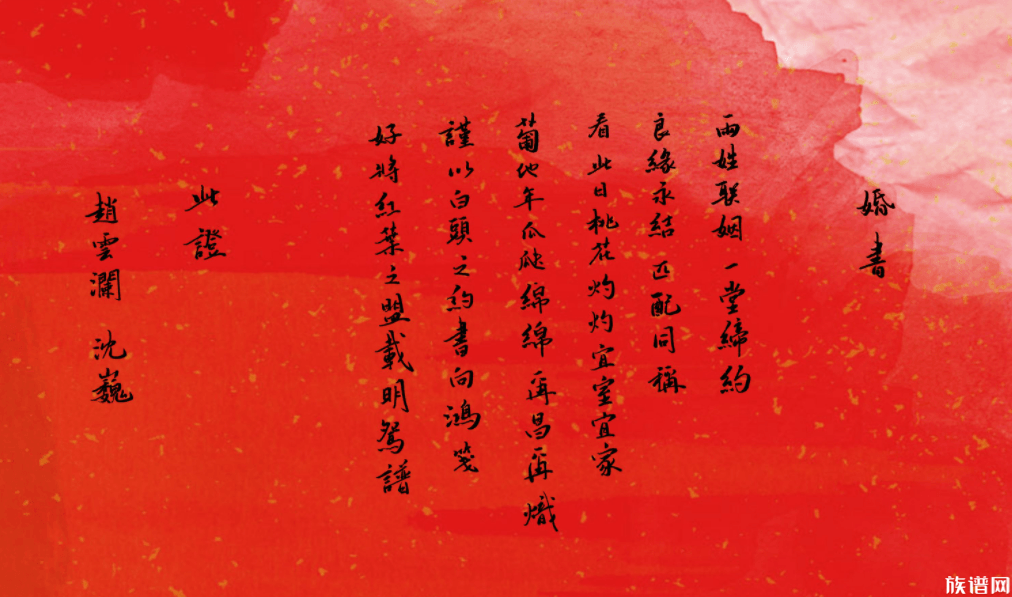 婚書
兩姓联姻 一堂締約
良緣永結 匹配同稱
看此日桃花灼灼宜室宜家
蔔他年瓜瓞綿綿再昌再熾
謹以白頭之約書向鴻箋
好將紅葉之盟載明鴛譜
此證
趙雲瀾 沈巍
族谱网